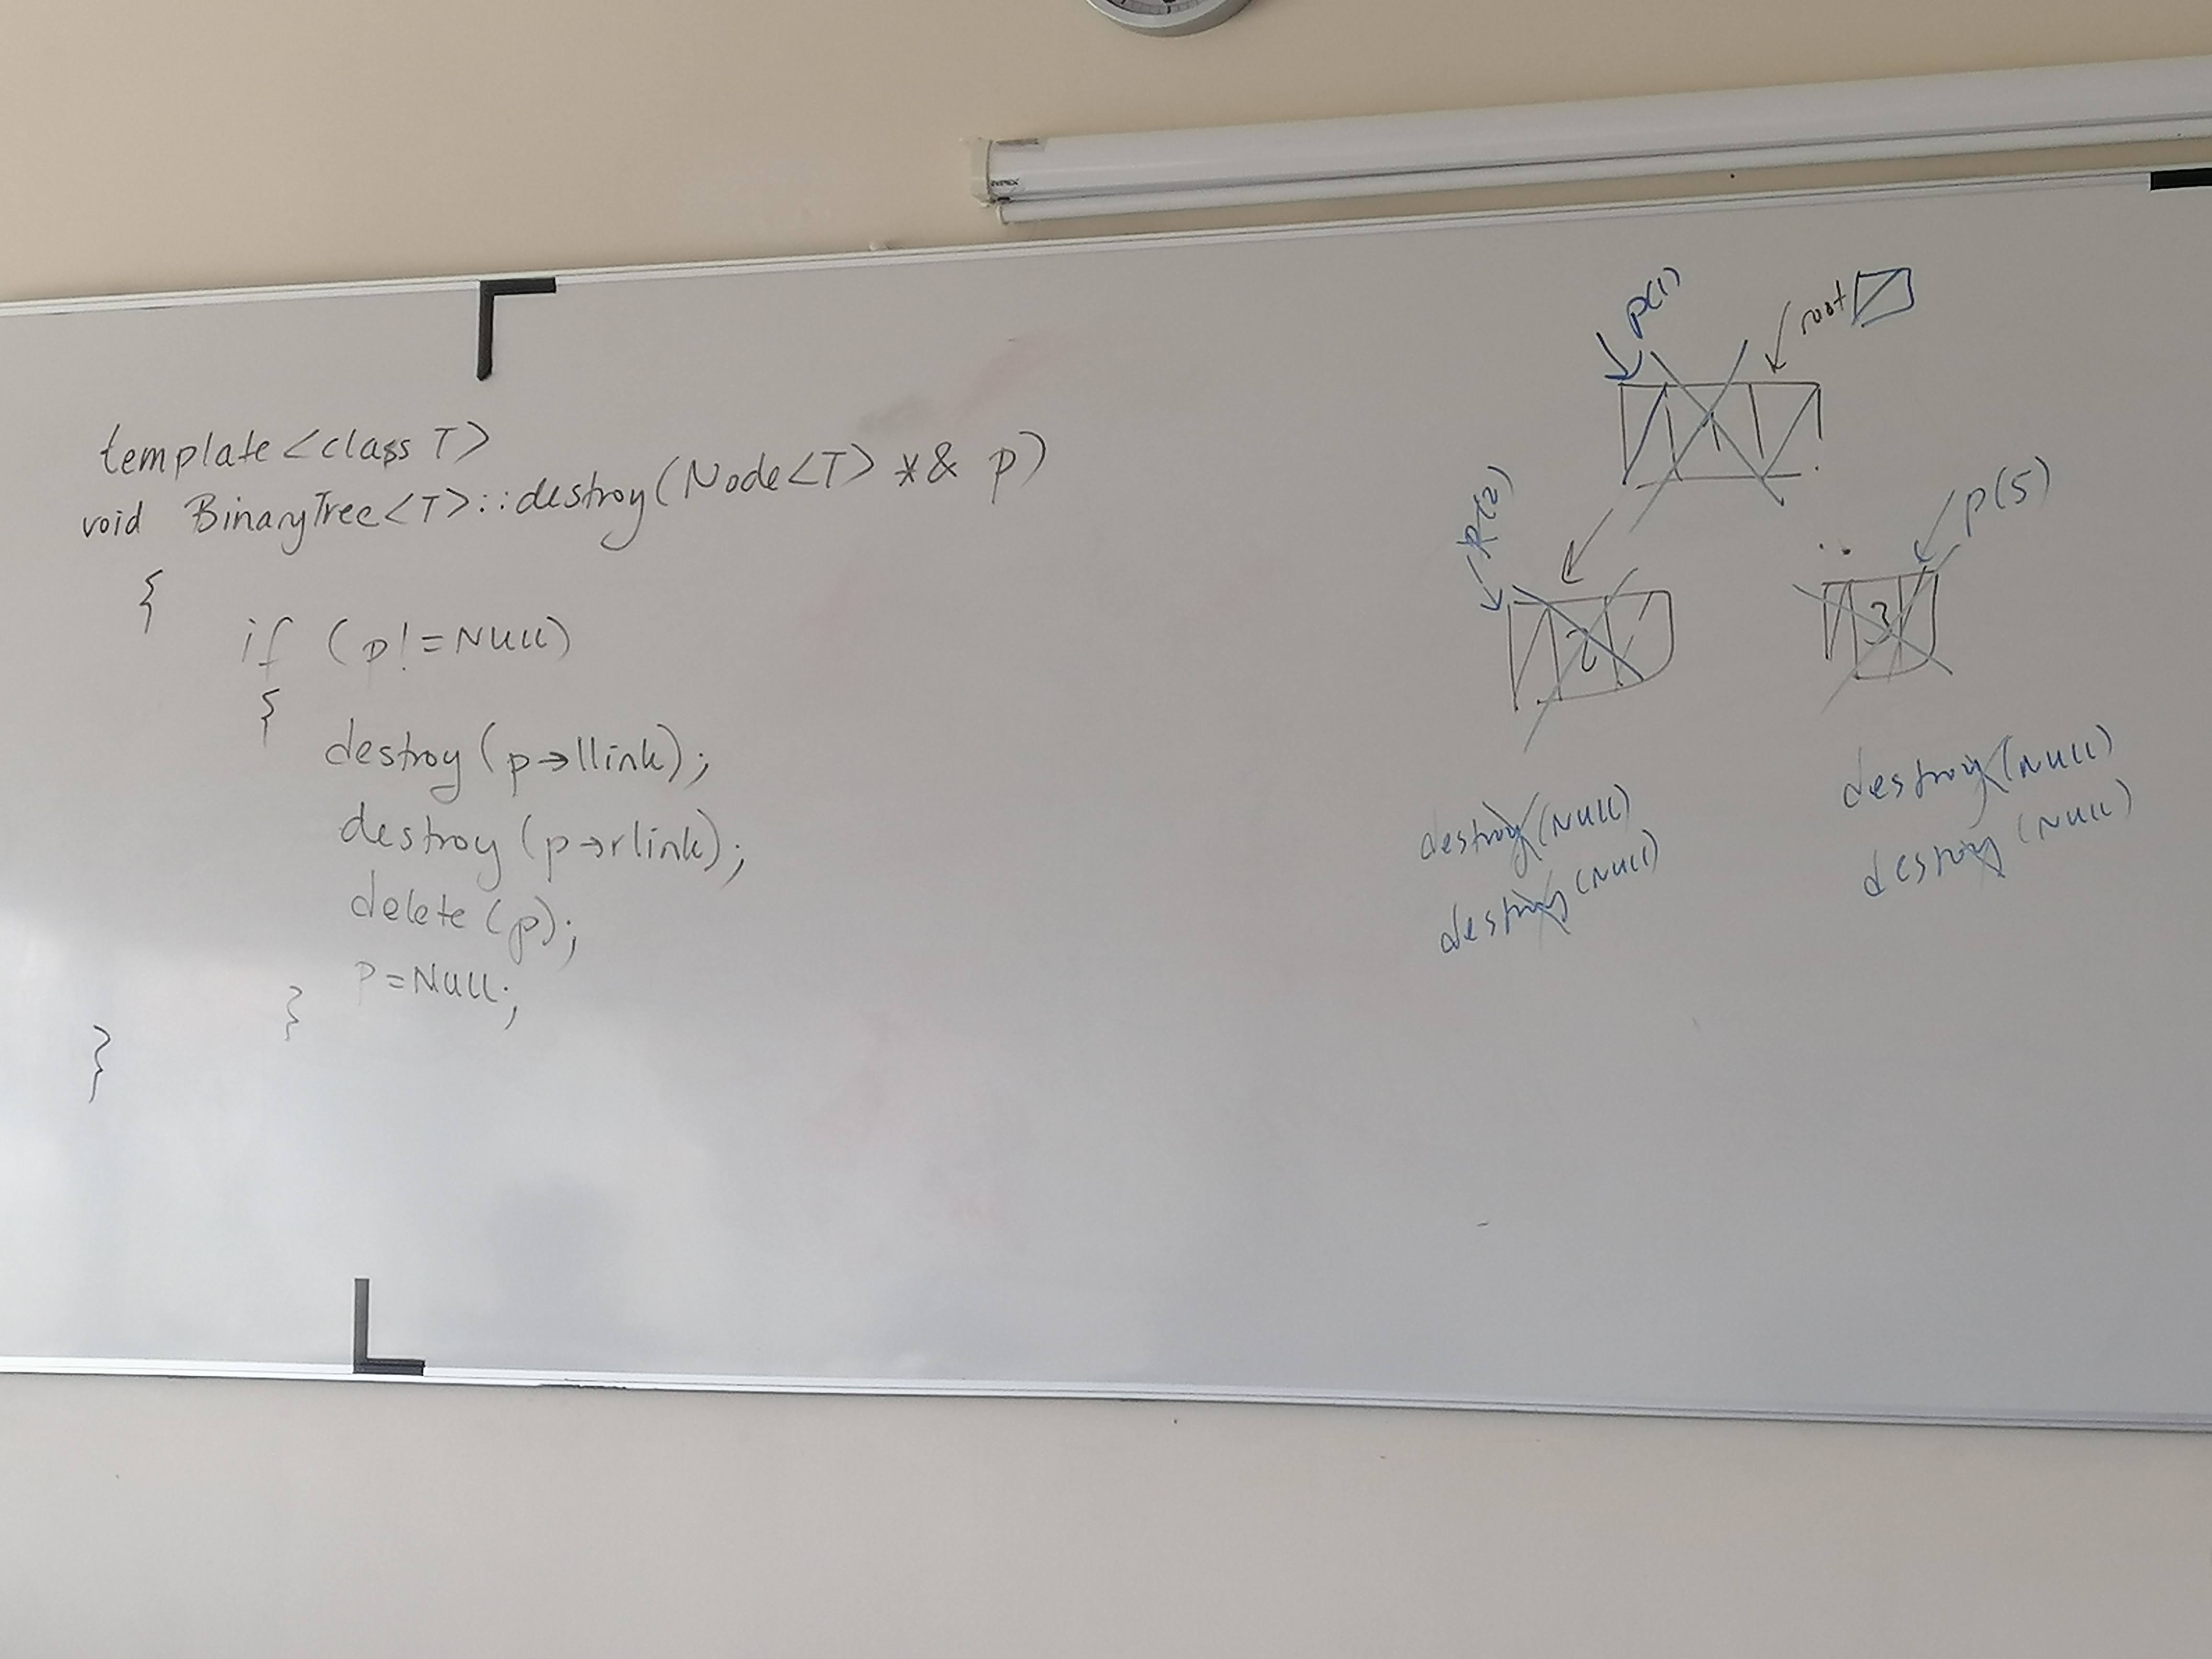 template<class T>
void BinaryTree<T>::destroy(Node<T> *& p)
{
if (p!=NULL)
{
destroy(p→llink);
destroy(p→rlink);
delete(p);
p=NULL;
}
}
p(1)
root
1
p(2)
2
p(5)
3
destroy(NULL)
destroy(NULL)
destroy(NULL)
destroy(NULL)